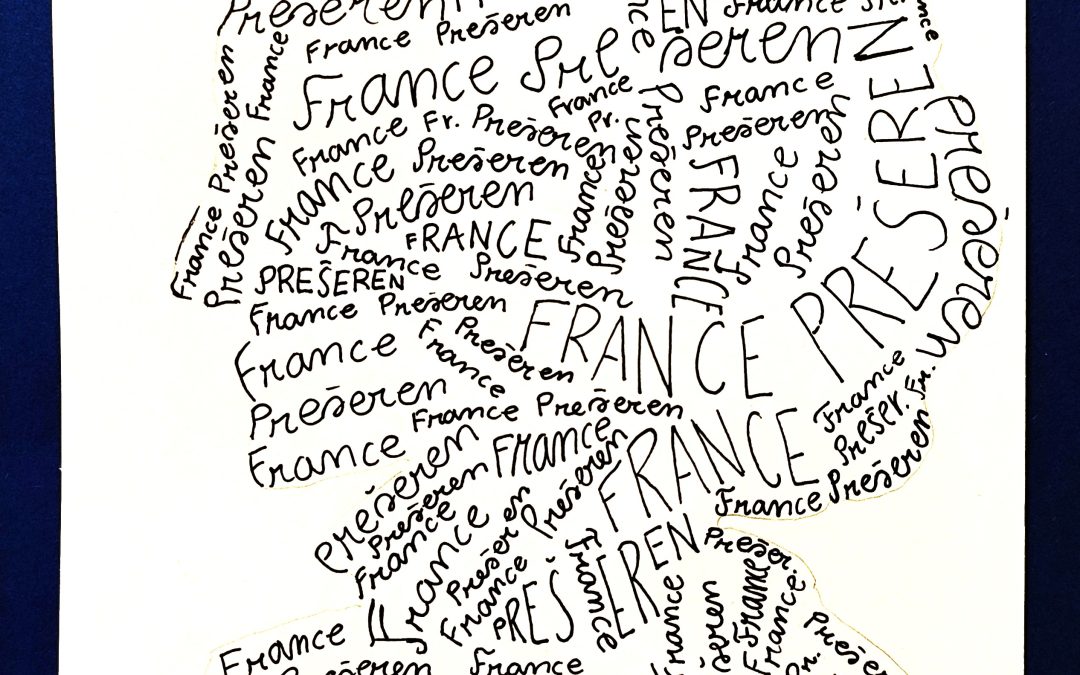 Prešeren
France Prešeren
EN
France
France Pre
šeren
France
France Prešeren
Prešeren France
France
Pr.
France
Prešeren
France Fr. Prešeren
Prešeren
PREŠEREN
Prešeren
France Prešeren
Fr. Prešeren
France
Prešeren
Prešeren
FRANCE
France
Prešeren
FRANCE
France Prešeren
PREŠEREN
France Prešeren
FRANCE PREŠEREN
France
Prešeren
France
Prešeren
France Prešeren
France
Prešeren
France
Prešeren
France
FRANCE
PREŠEREN
France
Prešer.
Fr.
France Prešeren
Prešeren
France
France
Prešeren
Prešeren
France
France
PREŠ
Prešer.
France
France
France
France
šeren
Prešeren
France
Pr.
Prešeren
France